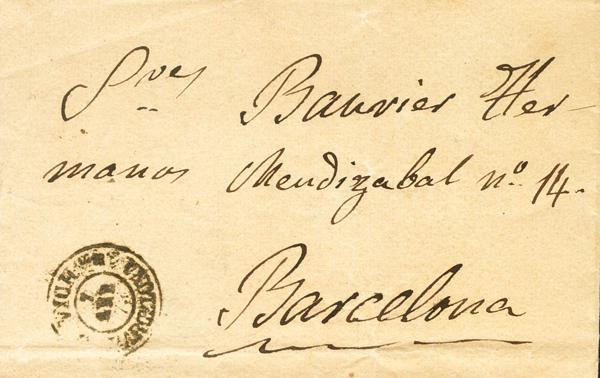 Sres Bauvier Her-
manos Mendizabal nº 14.
Barcelona